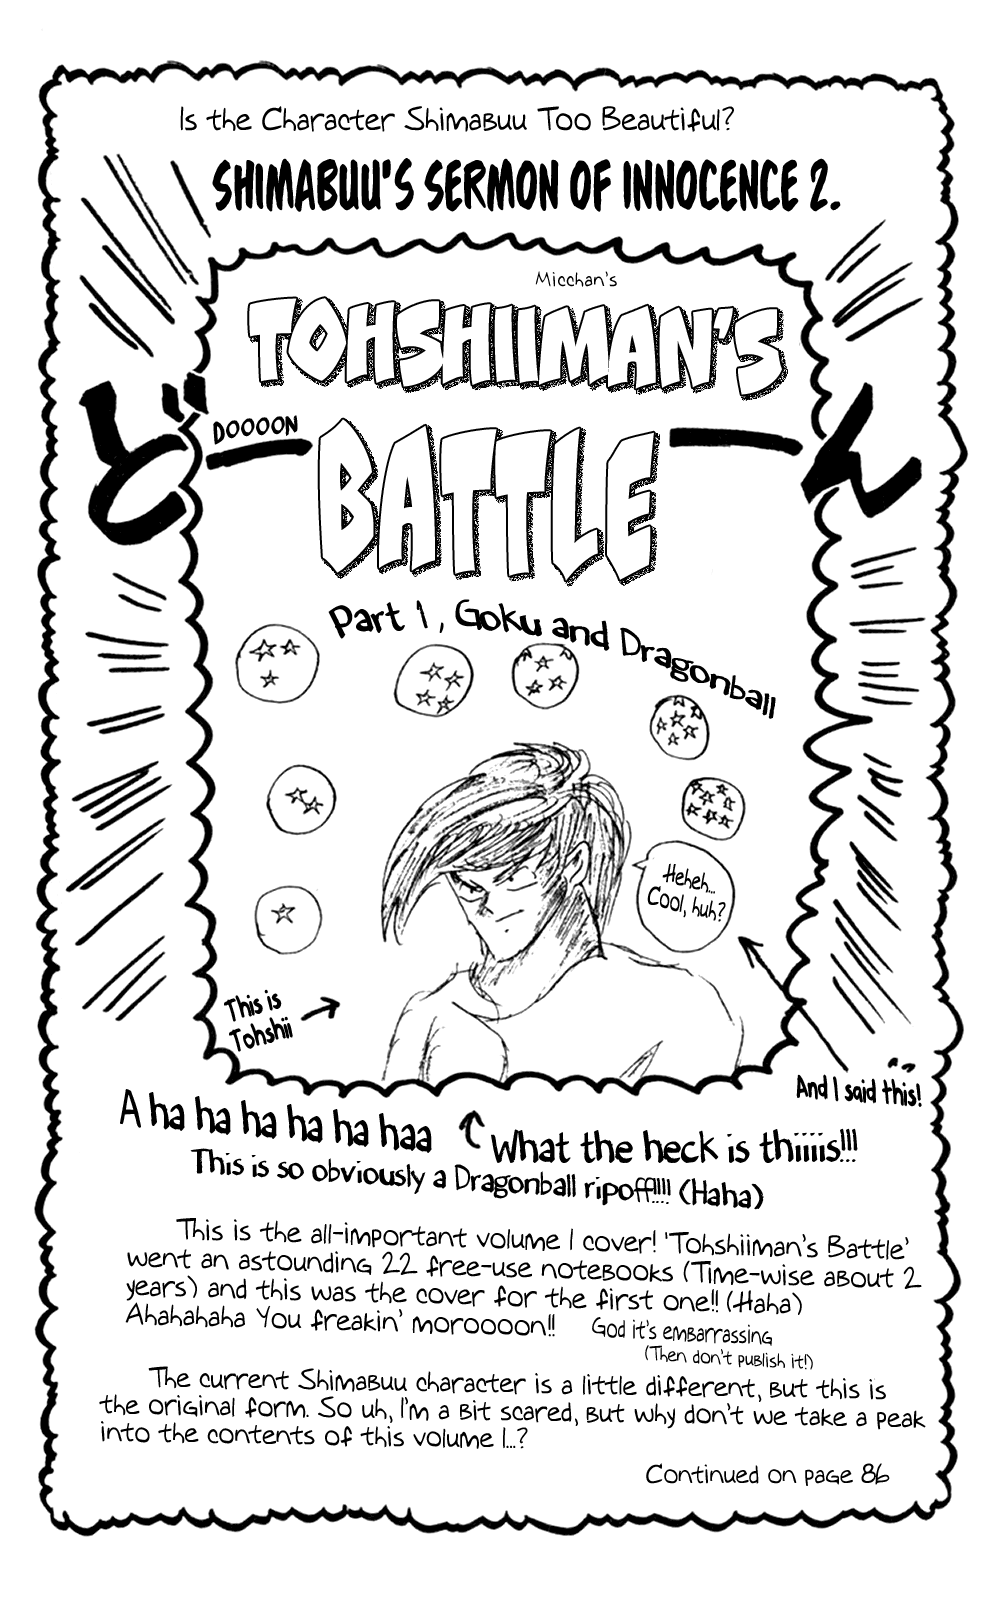 Is the Character Shimabuu Too Beautiful?
SHIMABUU'S SERMON OF INNOCENCE 2.
Micchan's
TOHSHIIMAN'S
どーん
DOOOON
BATTLE
Part 1, Goku and Dragonball
Heheh...
Cool, huh?
This is
Tohshii
And I said this!
A ha ha ha ha ha haa
What the heck is thiiiis!!!
This is so obviously a Dragonball ripoff!!!! (Haha)
This is the all-important volume 1 cover! 'Tohshiiman's Battle'
went an astounding 22 free-use notebooks (Time-wise about 2
years) and this was the cover for the first one!! (Haha)
Ahahahaha You freakin' moroooon!!
God it's embarrassing
(Then don't publish it!)
The current Shimabuu character is a little different, but this is
the original form. So uh, I'm a bit scared, but why don't we take a peak
into the contents of this volume 1...?
Continued on page 86